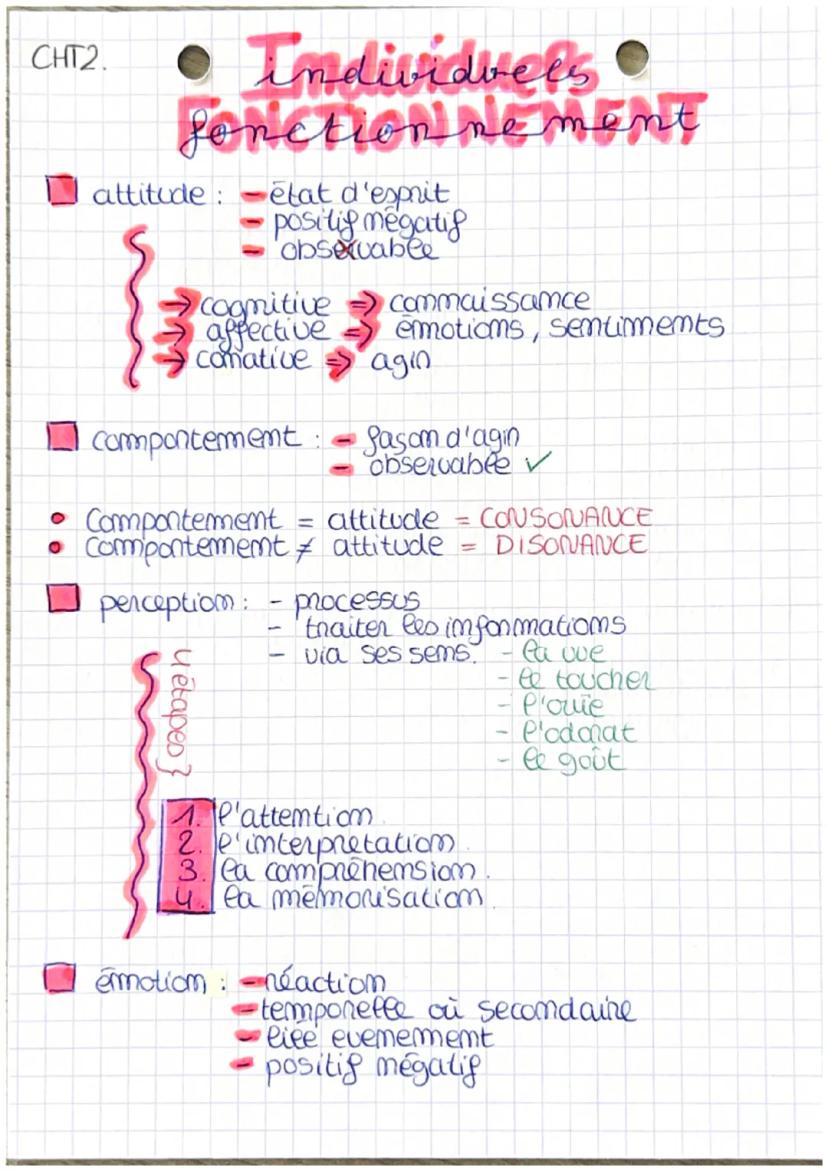 CHT2.
Individuels
fonctionnement
attitude : - état d'esprit
- positif négatif
- observable
→ cognitive ⇒ connaissance
→ affective ⇒ émotions, sentiments
→ conative ⇒ agir
comportement : - fason d'agir
- observable ✓
• Comportement = attitude = CONSONANCE
• comportement ≠ attitude = DISONANCE
perception : - processus
- traiter les informations
- via ses sens. - la vue
- le toucher
- l'ouïe
- l'odorat
- le goût
4 étapes }
1. l'attention.
2. l'interprétation.
3. la compréhension.
4. la mémorisation.
émotion : - réaction
- temporelle où secondaire
- liée evenement
- positif négatif